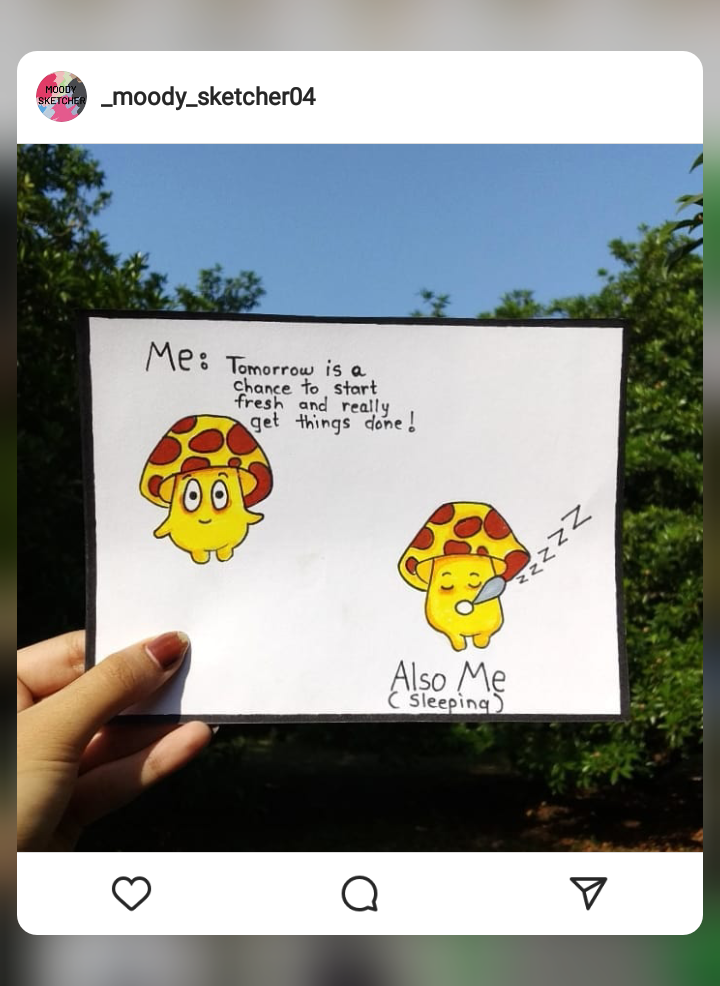 MOODY
SKETCHER
_moody_sketcher04
Me: Tomorrow is a
chance to start
fresh and really
get things done!
zzzzZZ
Also Me
(Sleeping)